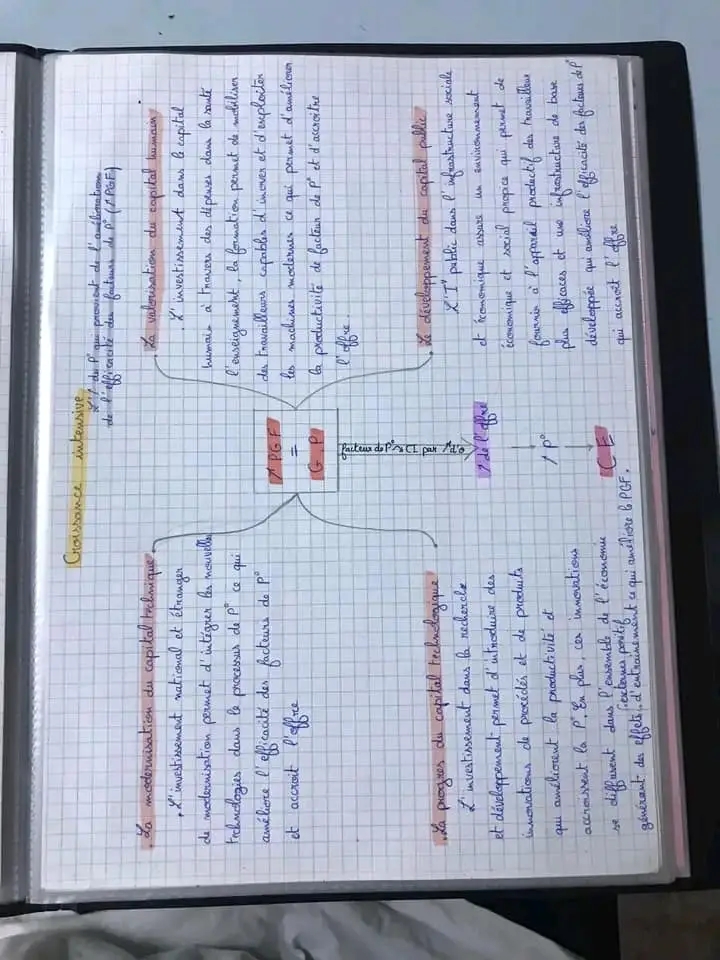 Croissance intensive
L'↗ du P° qui provient de l'amélioration
de l'efficacité des facteurs de P° (↗PGF)
La modernisation du capital technique
L'investissement national et étranger
de modernisation permet d'intégrer les nouvelles
technologies dans le processus de P° ce qui
améliore l'efficacité des facteurs de P°
et accroit l'offre
La valorisation du capital humain
L'investissement dans le capital
humain à travers des dépenses dans la santé
l'enseignement, la formation permet de mobiliser
des travailleurs capables d'inover et d'exploiter
les machines modernes ce qui permet d'améliorer
la productivité de facteur de P° et d'accroitre
l'offre.
↗ PGF
=
G.P
facteur de P° CI par
↗ de l'offre
↗ P°
C E
La progres du capital technologique
L'investissement dans la recherche
et développement permet d'introduire des
innovations de procédés et de produits
qui améliorent la productivité et
accroissent la P°. En plus, ces innovations
se diffusent dans l'ensemble de l'économie
externes positifs
générent des effets d'entrainement ce qui améliore la PGF.
Le développement du capital public
L'I^t public dans l'infrastructure sociale
et économique assure un environnement
économique et social propice qui permet de
fournir à l'appareil productif des travailleurs
plus efficaces et une infrastructure de base
développée qui améliore l'efficacité des facteurs de P°
qui accroit l'offre